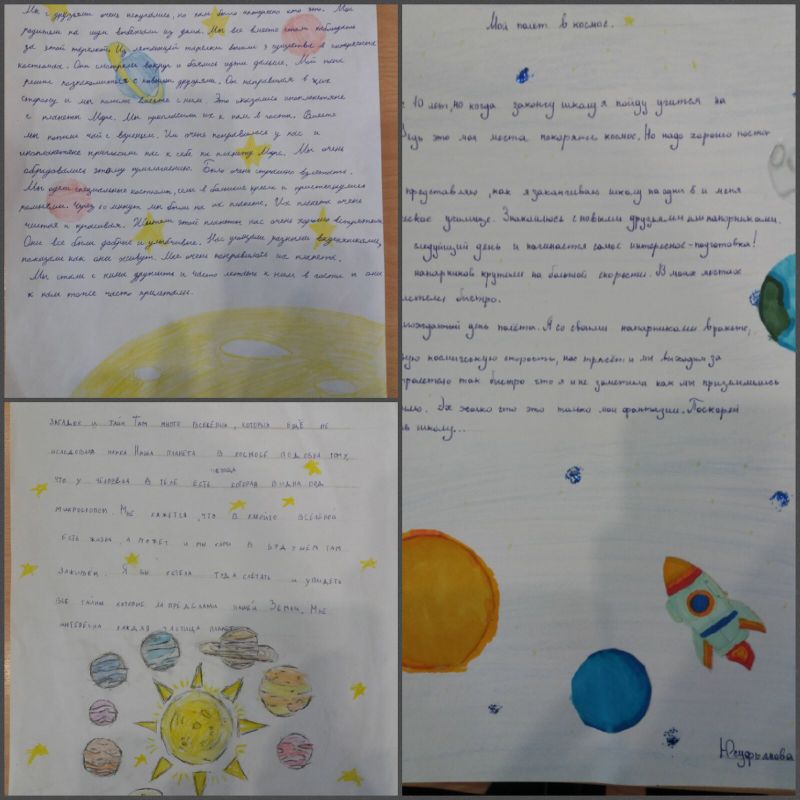 Мы с друзьями очень испугались, но нам было интересно кто это. Мои
родители на шум выбежали из дома. Мы все вместе стали наблюдать
за этой тарелкой. Из летающей тарелки вышли 3 существа в интересных
костюмах. Они смотрели вокруг и боялись идти дальше. Мой папа
решил познакомиться с новыми друзьями. Он направился в их
сторону и мы пошли вместе с ним. Это оказались инопланетяне
с планеты Марс. Мы пригласили их к нам в гости. Вместе
мы попили чай с вареньем. Им очень понравилось у нас и
инопланетяне пригласили нас к себе на планету Марс. Мы очень
обрадовались этому приглашению. Было очень страшно взлетать.
Мы одели специальные костюмы, сели в большие кресла и пристегнулись
ремнями. Через 20 минут мы были на их планете. Их планета очень
чистая и красивая. Жители этой планеты нас очень хорошо встретили.
Они все были добрые и улыбчивые. Нас угощали разными
показали как они живут. Мне очень понравилась их планета.
Мы стали с ними дружить и часто летать к ним в гости и они
к нам тоже часто прилетали.
загадок и тайн Там много вселённа, которых ещё не
иследовала наука Наша планета в космосе подобна тому,
частица
что у человека в теле есть которая видна под
микроскопом. Мне кажется, что в какойто вселеной
есть жизнь, а может и мы сами в будущем там
заживём. Я бы хотела туда слетать и увидеть
все тайны которые за пределами нашей Земли. Мне
интересна каждая частица планет
Мой полет в космос.
10 лет, но когда закончу школу я пойду учится на
Ведь это моя мечта покорять космос. Но надо хорошо
представляю, как я заканчиваю школу на одни 5 и меня
училище. Знакомлюсь с новыми друзьями или напарниками.
следующий день и начинается самое интересное - подготовка!
напарников крутили на большой скорости. В моих мечтах
быстро.
день полёта. Я со своими напарниками в ракете,
космическую скорость, нас трясёт и мы выходим за
пролетело так быстро что я и не заметила как мы приземлились
Эх жалко что это только мои фантазии. Поскорей
школу...